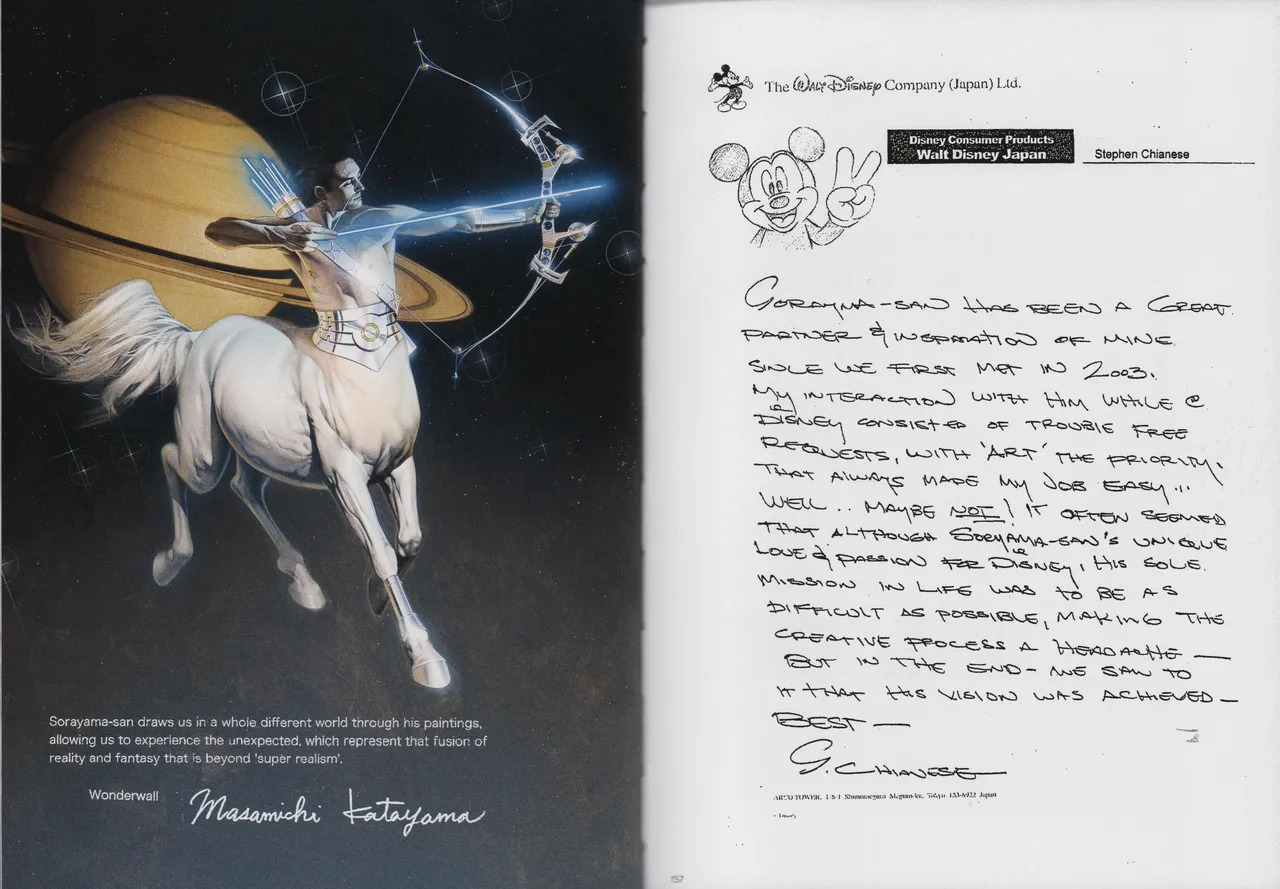 Sorayama-san draws us in a whole different world through his paintings,
allowing us to experience the unexpected, which represent that fusion of
reality and fantasy that is beyond 'super realism'.
Wonderwall
Masamichi Katayama
The WALT DISNEY Company (Japan) Ltd.
Disney Consumer Products
Walt Disney Japan
Stephen Chianese
SORAYMA-SAN HAS BEEN A GREAT
PARTNER & INSPIRATION OF MINE
SINCE WE FIRST MET IN 2003.
MY INTERACTION WITH HIM WHILE @
DISNEY CONSISTED OF TROUBLE FREE
REQUESTS, WITH 'ART' THE PRIORITY.
THAT ALWAYS MADE MY JOB EASY...
WELL.. MAYBE NOT! IT OFTEN SEEMED
THAT ALTHOUGH SORYAMA-SAN'S UNIQUE
LOVE & PASSION FOR DISNEY, HIS SOLE
MISSION IN LIFE WAS TO BE AS
DIFFICULT AS POSSIBLE, MAKING THE
CREATIVE PROCESS A HEADACHE —
BUT IN THE END - WE SAW TO
IT THAT HIS VISION WAS ACHIEVED -
BEST —
S. CHIANESE
ARCO TOWER, 1-8-1 Shimomeguro Meguro-ku, Tokyo 153-8922 Japan
157